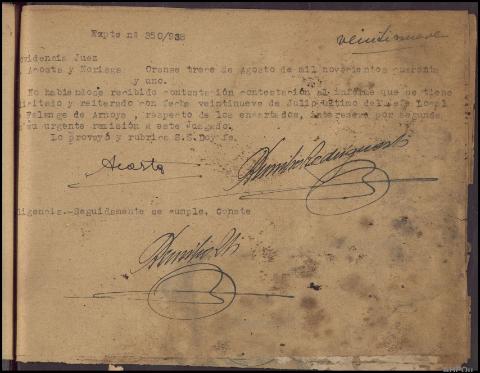 Expte nº 350/938
veintinueve
ovidencia Juez
. Acosta y Noriega   Orense trece de Agosto de mil novecientos cuarenta
y uno.
No habiéndose recibido contestación contestación al informe que se tiene
icitado y reiterado con fecha veintinueve de Julio último del Jefe Local
Falange de Arnoya , respecto de los encartados, interesese por segunda
su urgente remisión a este Juzgado.
Lo proveyó y rubrica S.S. Doy fe.
Acosta
igencia.-Seguidamente se cumple. Conste